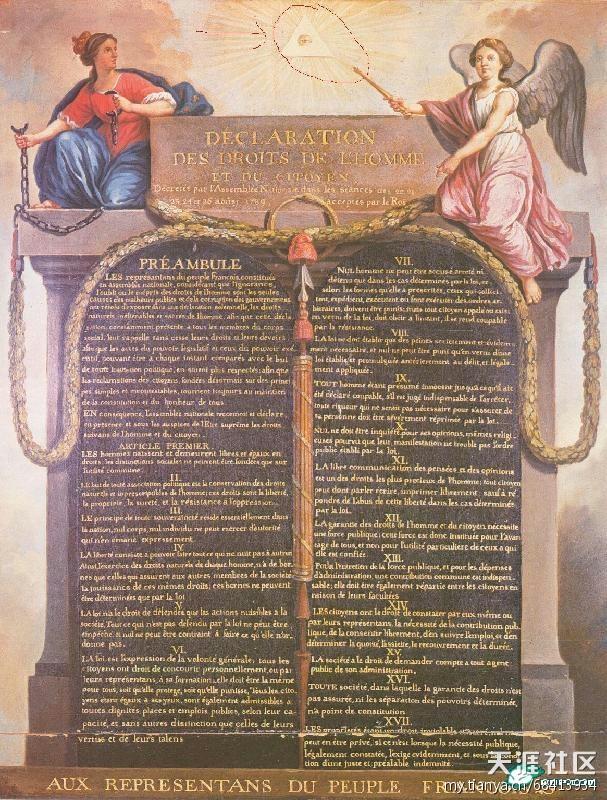 DÉCLARATION
DES DROITS DE L'HOMME
ET DU CITOYEN
Décrétés par l'Assemblée Nationale dans les séances des 20, 21
23, 24 et 26 août 1789, acceptés par le Roi
PRÉAMBULE
LES représentans du peuple François, constitués
en assemblée nationale, considérant que l'ignorance,
l'oubli ou le mépris des droits de l'homme sont les seules
causes des malheurs publics et de la corruption des gouvernemens
ont résolu d'exposer dans une déclaration solemnelle, les droits
naturels, inaliénables et sacrés de l'homme; afin que cette décla-
ration, constamment présente à tous les membres du corps
social, leur rappelle sans cesse leurs droits et leurs devoirs;
afin que les actes du pouvoir législatif et ceux du pouvoir exé-
cutif, pouvant être à chaque instant comparés avec le but
de toute institution politique, en soient plus respectés; afin que
les réclamations des citoyens, fondées désormais sur des princi-
pes simples et incontestables, tournent toujours au maintien
de la constitution et du bonheur de tous.
EN conséquence, l'assemblée nationale reconnoit et déclare,
en présence et sous les auspices de l'Etre suprême les droits
suivans de l'homme et du citoyen.
ARTICLE PREMIER
LES hommes naissent et demeurent libres et égaux en
droits; les distinctions sociales ne peuvent être fondées que sur
l'utilité commune.
II.
LE but de toute association politique est la conservation des droits
naturels et imprescriptibles de l'homme; ces droits sont la liberté,
la propriété, la sureté, et la résistance à l'oppression.
III.
LE principe de toute souveraineté réside essentiellement dans
la nation, nul corps, nul individu ne peut exercer d'autorité
qui n'en émane expressement.
IV.
LA liberté consiste à pouvoir faire tout ce qui ne nuit pas à autrui
Ainsi, l'exercice des droits naturels de chaque homme, n'a de bor-
nes que celles qui assurent aux autres membres de la société
la jouissance de ces mêmes droits; ces bornes ne peuvent
être déterminées que par la loi
V.
LA loi n'a le droit de défendre que les actions nuisibles à la
société. Tout ce qui n'est pas défendu par la loi ne peut être
empêché, et nul ne peut être contraint à faire ce qu'elle n'or-
donne pas.
VI.
LA loi est l'expression de la volonté générale; tous les
citoyens ont droit de concourir personnellement, ou par
leurs représentans, à sa formation; elle doit être la même
pour tous, soit qu'elle protege, soit qu'elle punisse. Tous les citoy-
ens étans égaux à ses yeux, sont également admissibles à
toutes dignités, places et emplois publics, selon leur ca-
pacité, et sans autres distinction que celles de leurs
vertus et de leurs talens
VII.
NUL homme ne peut être accusé, arreté ni
détenu que dans les cas déterminés par la loi, et
selon les formes qu'elle a prescrites, ceux qui sollici-
tent, expédient, exécutent ou font exécuter des ordres ar-
bitraires, doivent être punis; mais tout citoyen appelé ou saisi
en vertu de la loi, doit obéir à l'instant, il se rend coupable
par la résistance.
VIII.
LA loi ne doit établir que des peines strictement et évidem-
ment nécessaire, et nul ne peut être puni qu'en vertu d'une
loi établie, et promulguée antérieurement au délit, et légale-
ment appliquée.
IX.
TOUT homme étant présumé innocent jusqu'à ce qu'il ait
été déclaré coupable, s'il est jugé indispensable de l'arréter,
toute rigueur qui ne serait pas nécessaire pour s'assurer de
sa personne doit être sévérement réprimée par la loi.
X.
NUL ne doit être inquiété pour ses opinions, mêmes religi-
euses pourvu que leur manifestation ne trouble pas l'ordre
public établi par la loi.
XI.
LA libre communication des pensées et des opinions
est un des droits les plus précieux de l'homme; tout citoyen
peut donc parler, écrire, imprimer librement; sauf à ré-
pondre de l'abus de cette liberté dans les cas déterminés
par la loi.
XII.
LA garantie des droits de l'homme et du citoyen nécessite
une force publique; cette force est donc instituée pour l'avan-
tage de tous, et non pour l'utilité particuliere de ceux a qui
elle est confiée.
XIII.
POUR l'entretien de la force publique, et pour les dépenses
d'administration, une contribution commune est indispen-
sable; elle doit être également répartie entre les citoyens en
raison de leurs facultées
XIV.
LES citoyens ont le droit de constater par eux même ou
par leurs représentans, la nécessité de la contribution pub-
lique, de la consentir librement, d'en suivre l'emploi, et d'en
déterminer la quotité, l'assiette, le recouvrement et la durée.
XV.
LA société a le droit de demander compte a tout agent
public de son administration.
XVI.
TOUTE société, dans laquelle la garantie des droits n'est
pas assurée, ni les séparation des pouvoirs déterminée,
n'a point de constitution
XVII.
LES propriétés étant un droit inviolable et sacré, nul ne
peut en être privé, si ce n'est lorsque la nécessité publique,
légalement constatée, l'exige évidemment, et sous la condi-
tion d'une juste et préalable indemnité.
AUX REPRESENTANS DU PEUPLE FR
天涯社区
my.tianya.cn/68413934